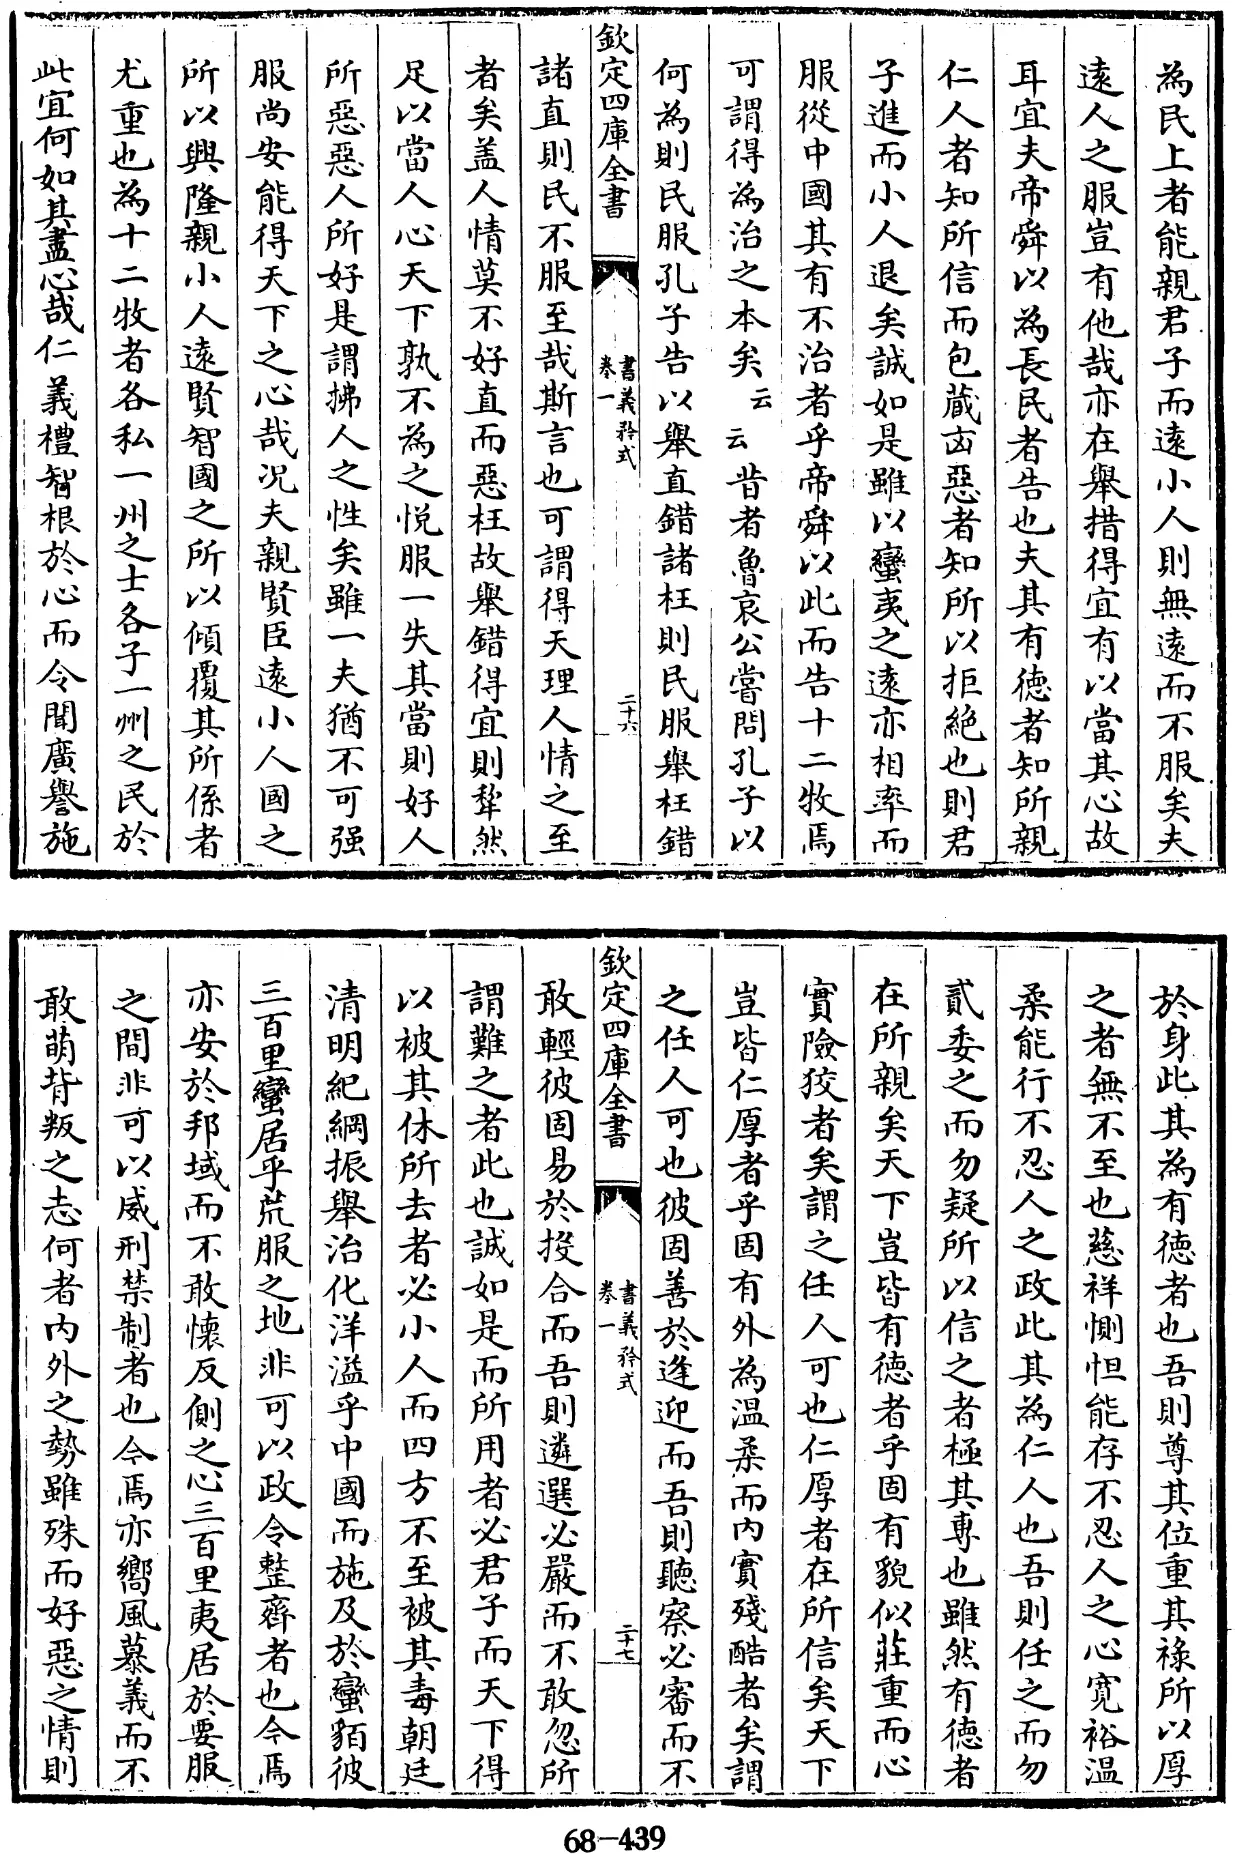 為民上者能親君子而遠小人則無遠而不服矣夫
遠人之服豈有他哉亦在舉措得宜有以當其心故
耳宜夫帝舜以為長民者告也夫其有德者知所親
仁人者知所信而包藏凶惡者知所以拒絶也則君
子進而小人退矣誠如是雖以蠻夷之遠亦相率而
服從中國其有不治者乎帝舜以此而告十二牧焉
可謂得為治之本矣云云昔者魯哀公嘗問孔子以
何為則民服孔子告以舉直錯諸枉則民服舉枉錯
欽定四庫全書
書義矜式
卷一
二十六
諸直則民不服至哉斯言也可謂得天理人情之至
者矣盖人情莫不好直而惡枉故舉錯得宜則犂然
足以當人心天下孰不為之悦服一失其當則好人
所惡惡人所好是謂拂人之性矣雖一夫猶不可强
服尚安能得天下之心哉况夫親賢臣遠小人國之
所以興隆親小人遠賢智國之所以傾覆其所係者
尤重也為十二牧者各私一州之士各子一州之民於
此宜何如其盡心哉仁義禮智根於心而令聞廣譽施
於身此其為有德者也吾則尊其位重其祿所以厚
之者無不至也慈祥惻怛能存不忍人之心寛裕温
柔能行不忍人之政此其為仁人也吾則任之而勿
貳委之而勿疑所以信之者極其專也雖然有德者
在所親矣天下豈皆有德者乎固有貌似莊重而心
實險狡者矣謂之任人可也仁厚者在所信矣天下
豈皆仁厚者乎固有外為温柔而内實殘酷者矣謂
之任人可也彼固善於逢迎而吾則聽察必審而不
欽定四庫全書
書義矜式
卷一
二十七
敢輕彼固易於投合而吾則遴選必嚴而不敢忽所
謂難之者此也誠如是而所用者必君子而天下得
以被其休所去者必小人而四方不至被其毒朝廷
清明紀綱振舉治化洋溢乎中國而施及於蠻貊彼
三百里蠻居乎荒服之地非可以政令整齊者也今焉
亦安於邦域而不敢懷反側之心三百里夷居於要服
之間非可以威刑禁制者也今焉亦嚮風慕義而不
敢萌背叛之志何者内外之勢雖殊而好惡之情則
68-439